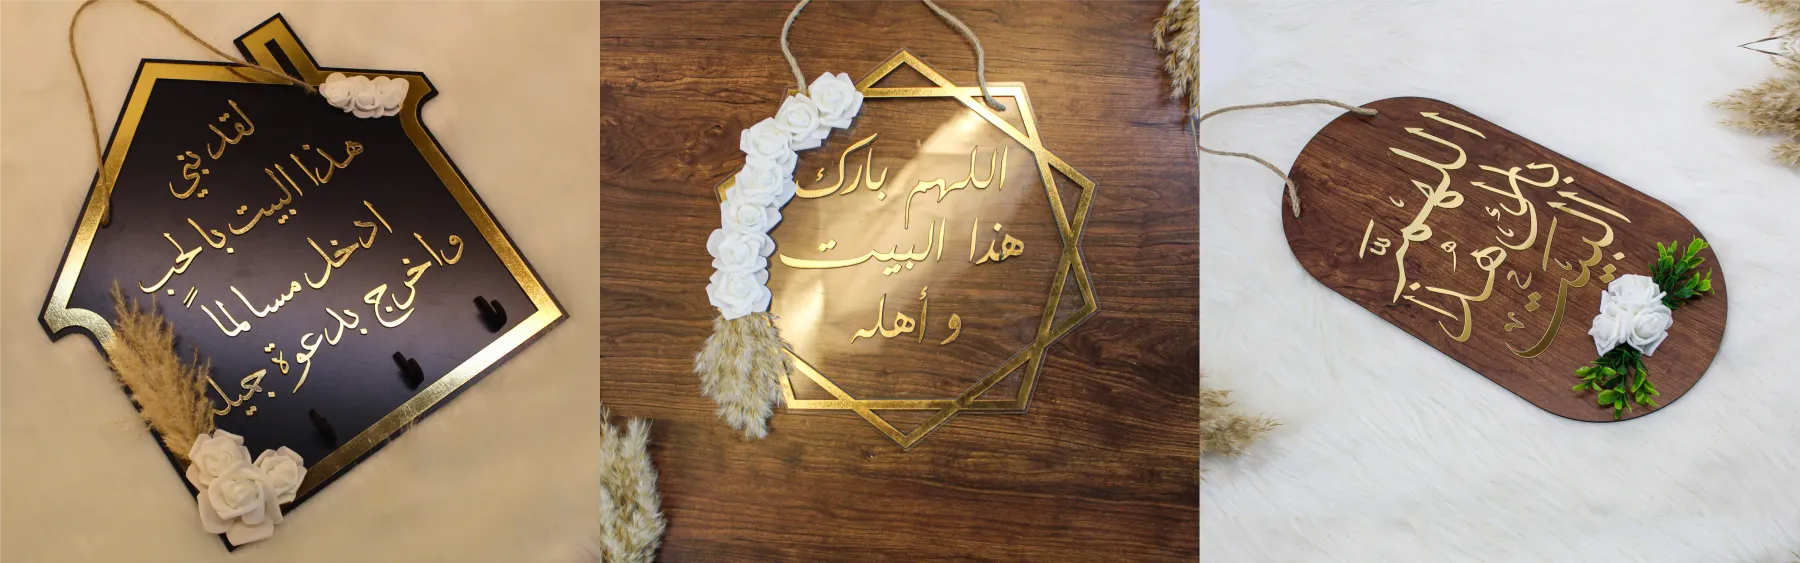 لقد بني
هذا البيت بالحب
ادخل مسالماً
واخرج بدعوة جميله
اللهم بارك
هذا البيت
و أهله
اللهم
بارك هذا
البيت